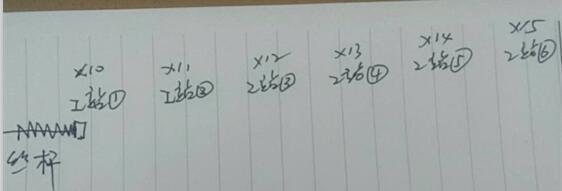 X10 X11 X12 X13 X14 X15
工站① 工站② 2站③ 2站④ 2站⑤ 2站⑥
丝杆